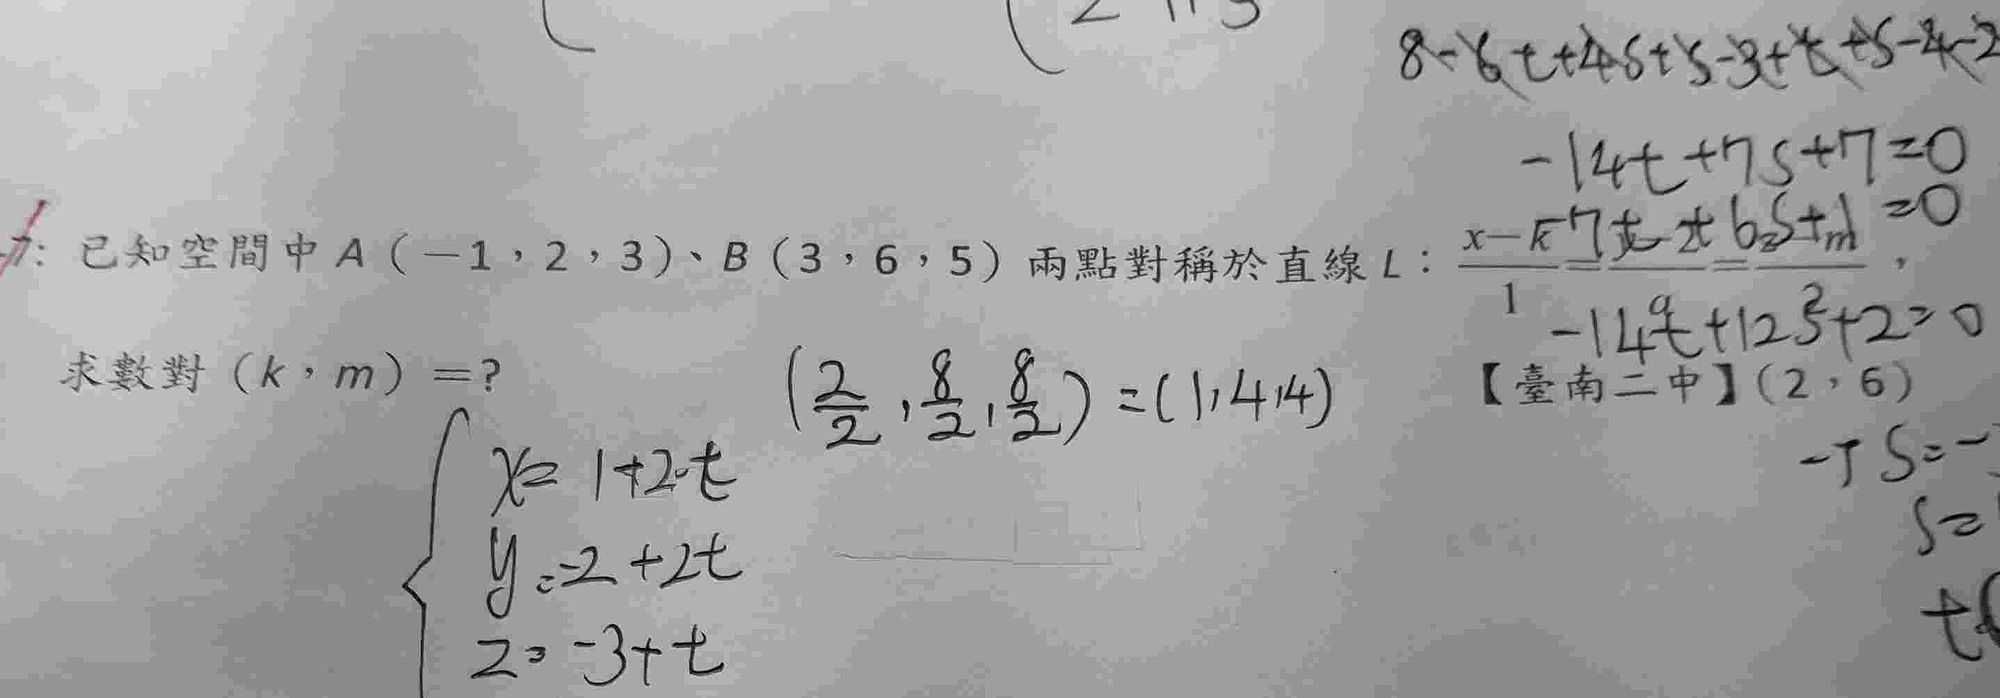 8-6t+4s+s-3+t+s-4-2
-14t+7s+7=0
7: 已知空間中A(-1,2,3)、B(3,6,5)兩點對稱於直線L:
x-k
1
=0
-14t+12s+2=0
求數對(k,m)=?
(2/2,8/2,8/2)=(1,4,4)
【臺南二中】(2,6)
x=1+2t
y=-2+2t
z=-3+t
s=